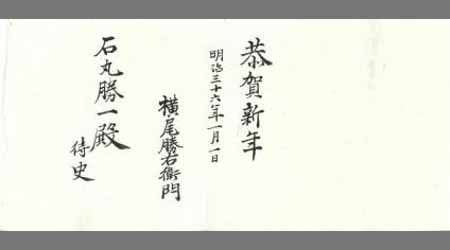 恭賀新年
明治三十六年一月一日
横尾勝右衛門
石丸勝一殿
侍史